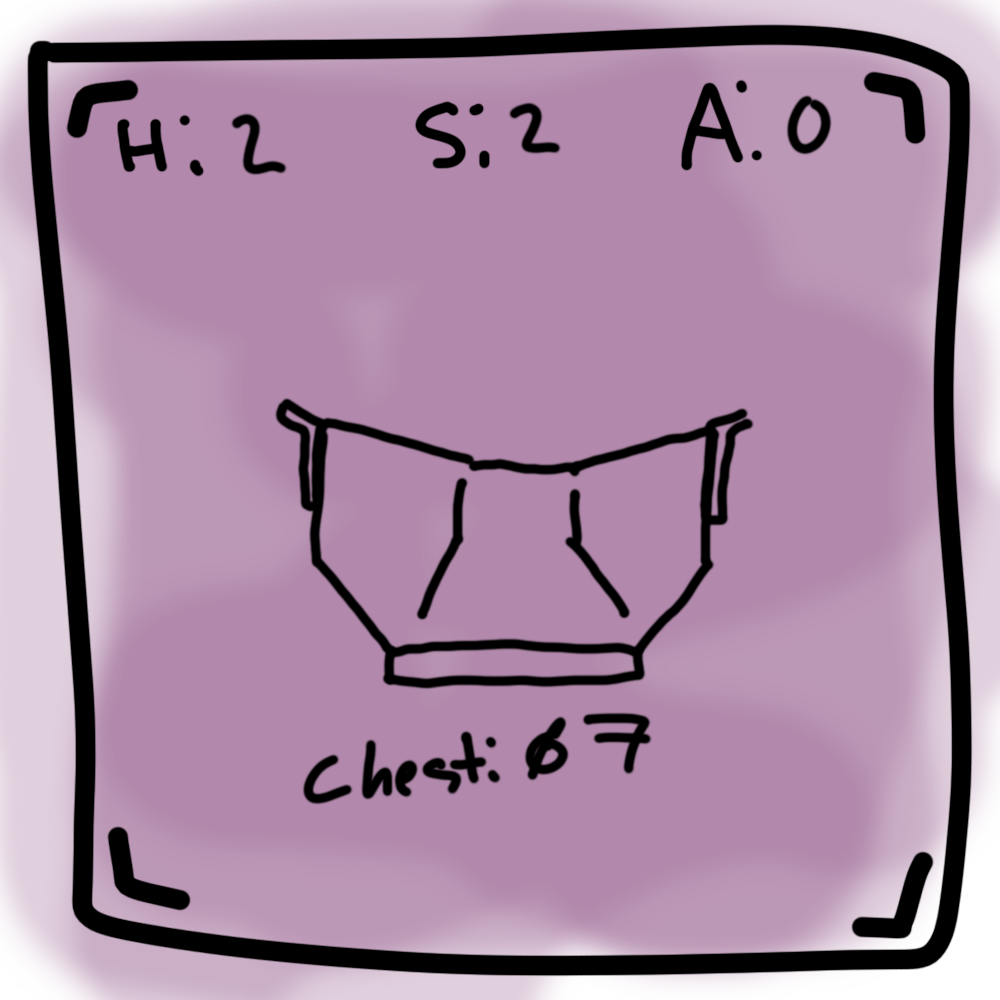 H: 2 S: 2 A: 0
Chest: Ø7